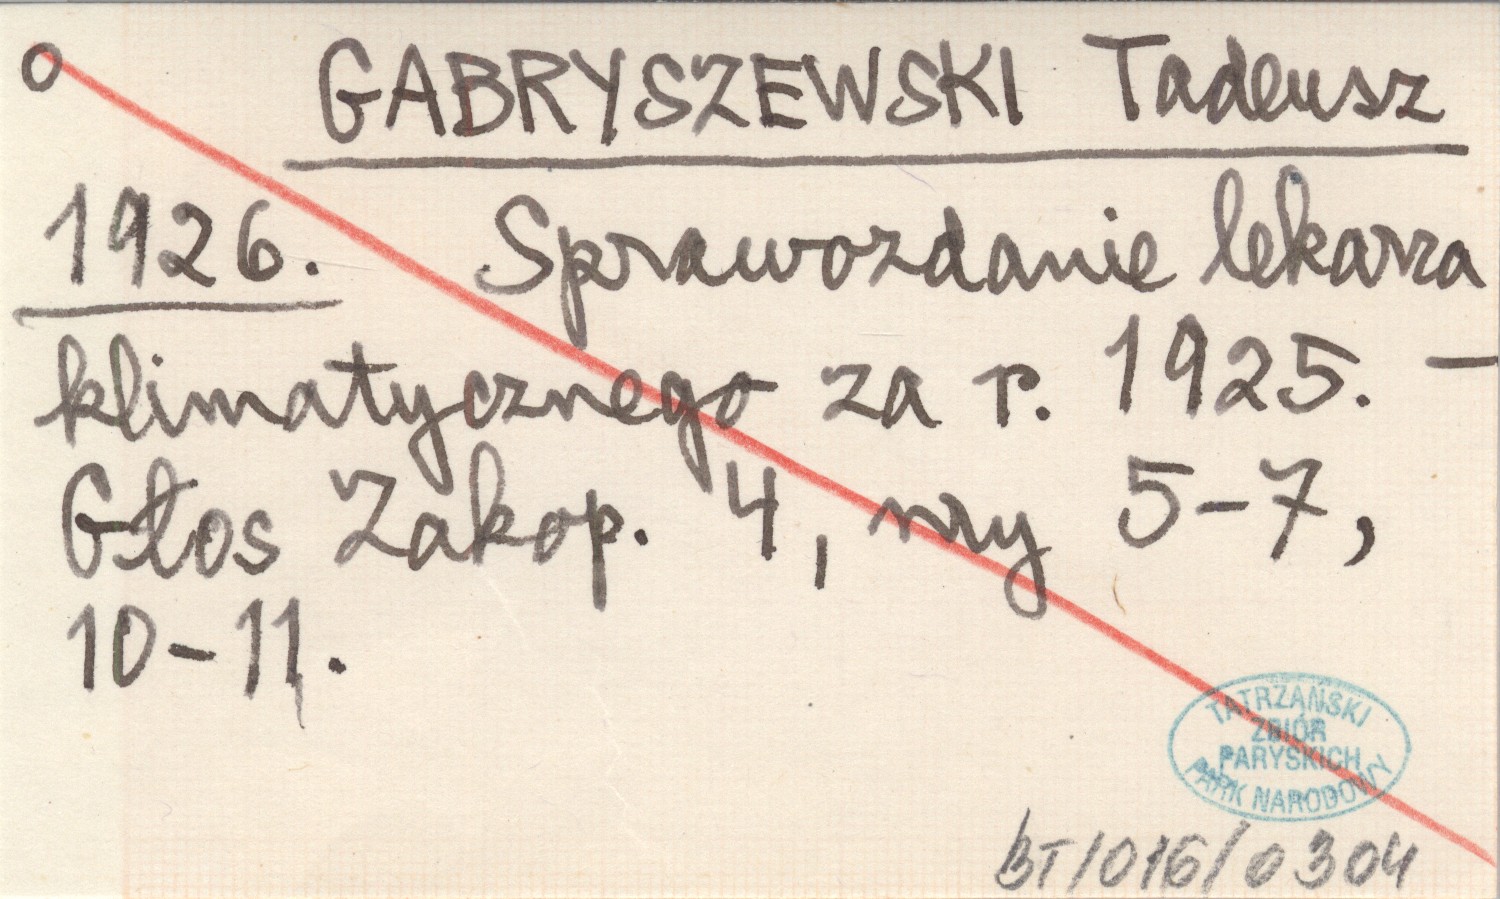 o GABRYSZEWSKI Tadeusz
1926. Sprawozdanie lekarza
klimatycznego za r. 1925. –
Głos Zakop. 4, nry 5-7,
10-11.
TATRZAŃSKI
ZBIÓR
PARYSKICH
PARK NARODOWY
BT/016/0304